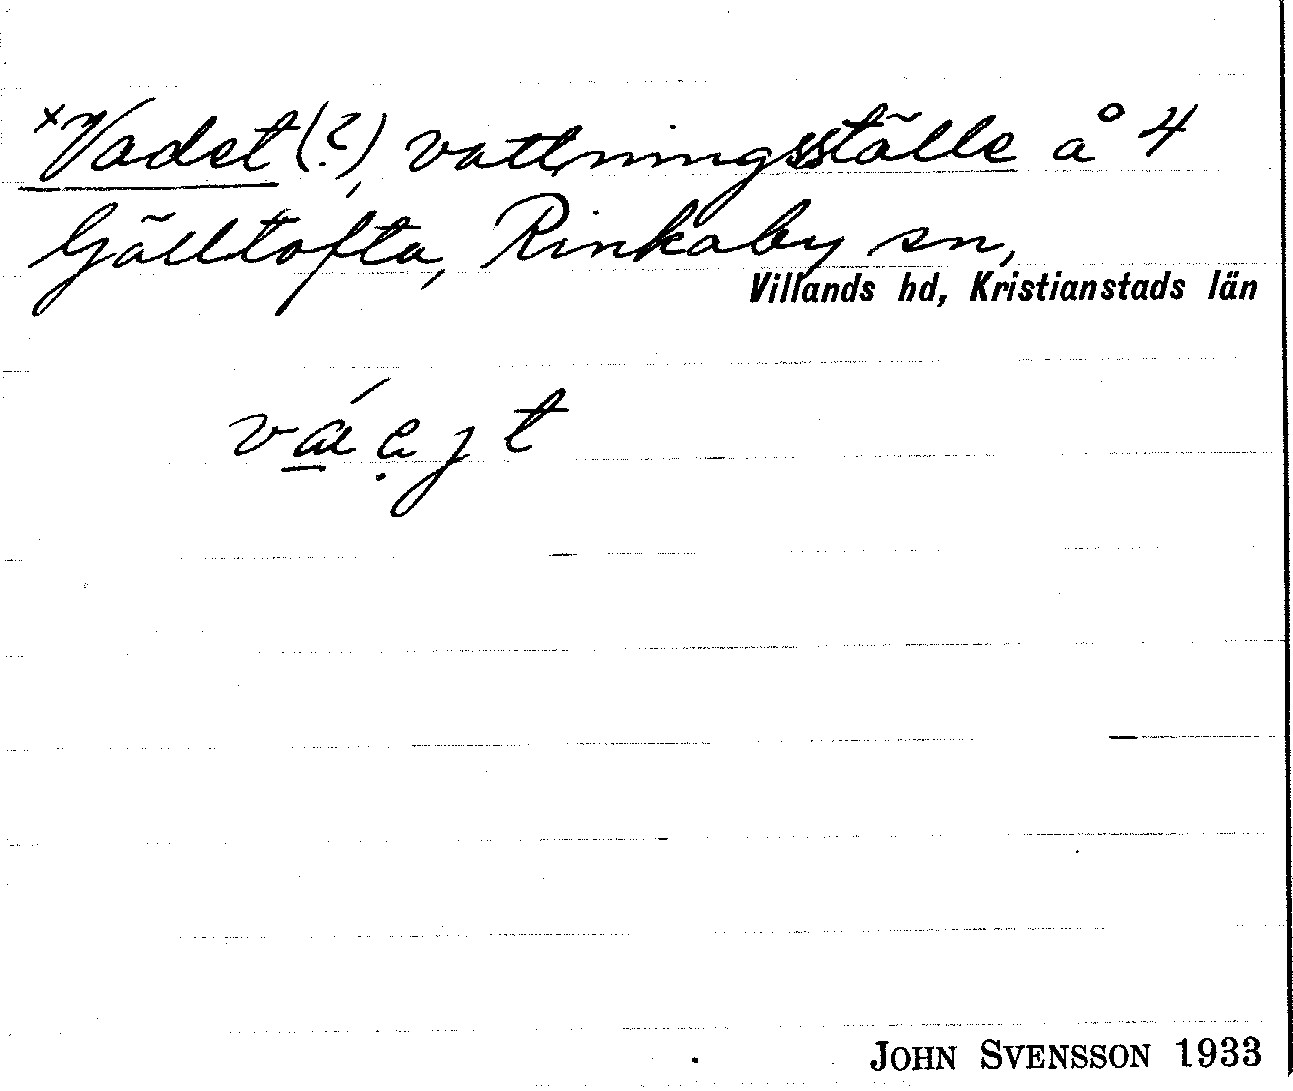 ×Vadet(?), vattningsställe å 4
Gälltofta, Rinkaby sn,
Villands hd, Kristianstads län
JOHN SVENSSON 1933